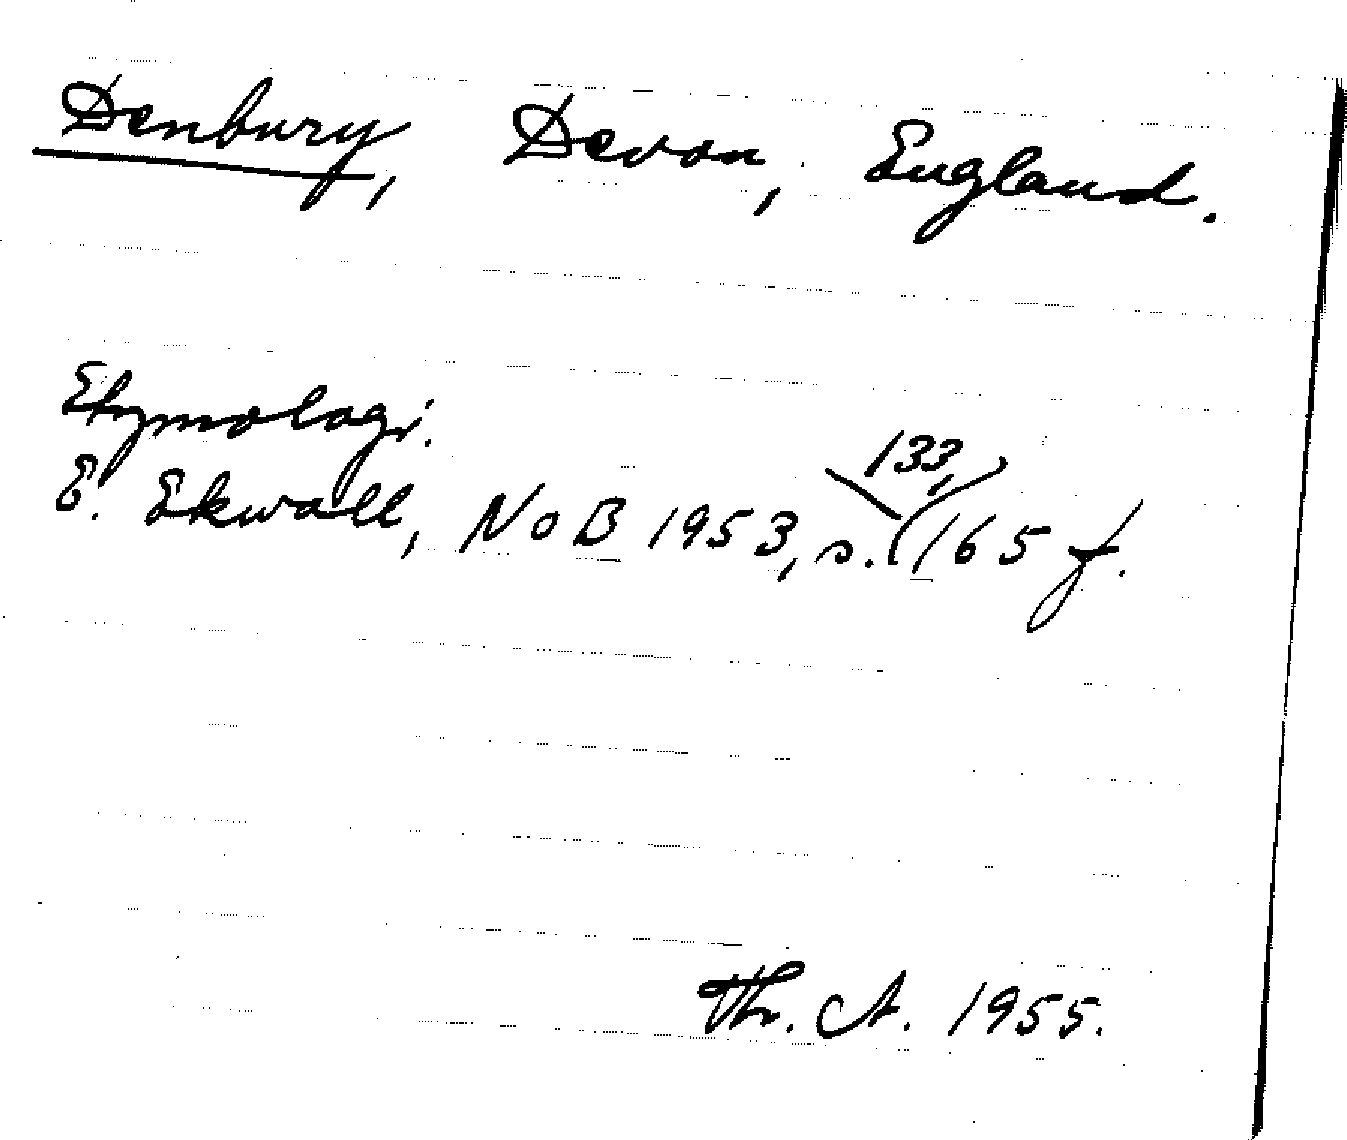 Denbury, Devon, England.
Etymologi.
E. Ekwall, NoB 1953, s. 133, 165 f.
Th. A. 1955.